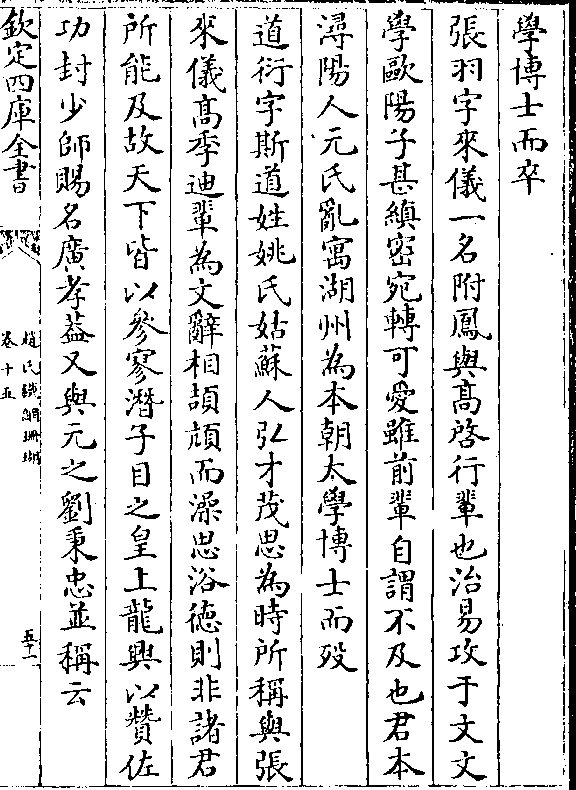 學博士而卒
張羽字來儀一名附鳳與髙啓行輩也治易攻于文文
學歐陽子甚縝密宛轉可愛雖前輩自謂不及也君本
潯陽人元氏亂寓湖州為本朝太學博士而殁
道衍字斯道姓姚氏姑蘇人弘才茂思為時所稱與張
來儀髙季迪輩為文辭相頡頏而澡思浴徳則非諸君
所能及故天下皆以參寥潛子目之皇上龍興以贊佐
功封少師賜名廣孝葢又與元之劉秉忠並稱云
欽定四庫全書
趙氏鐵網珊瑚
卷十五
五十一